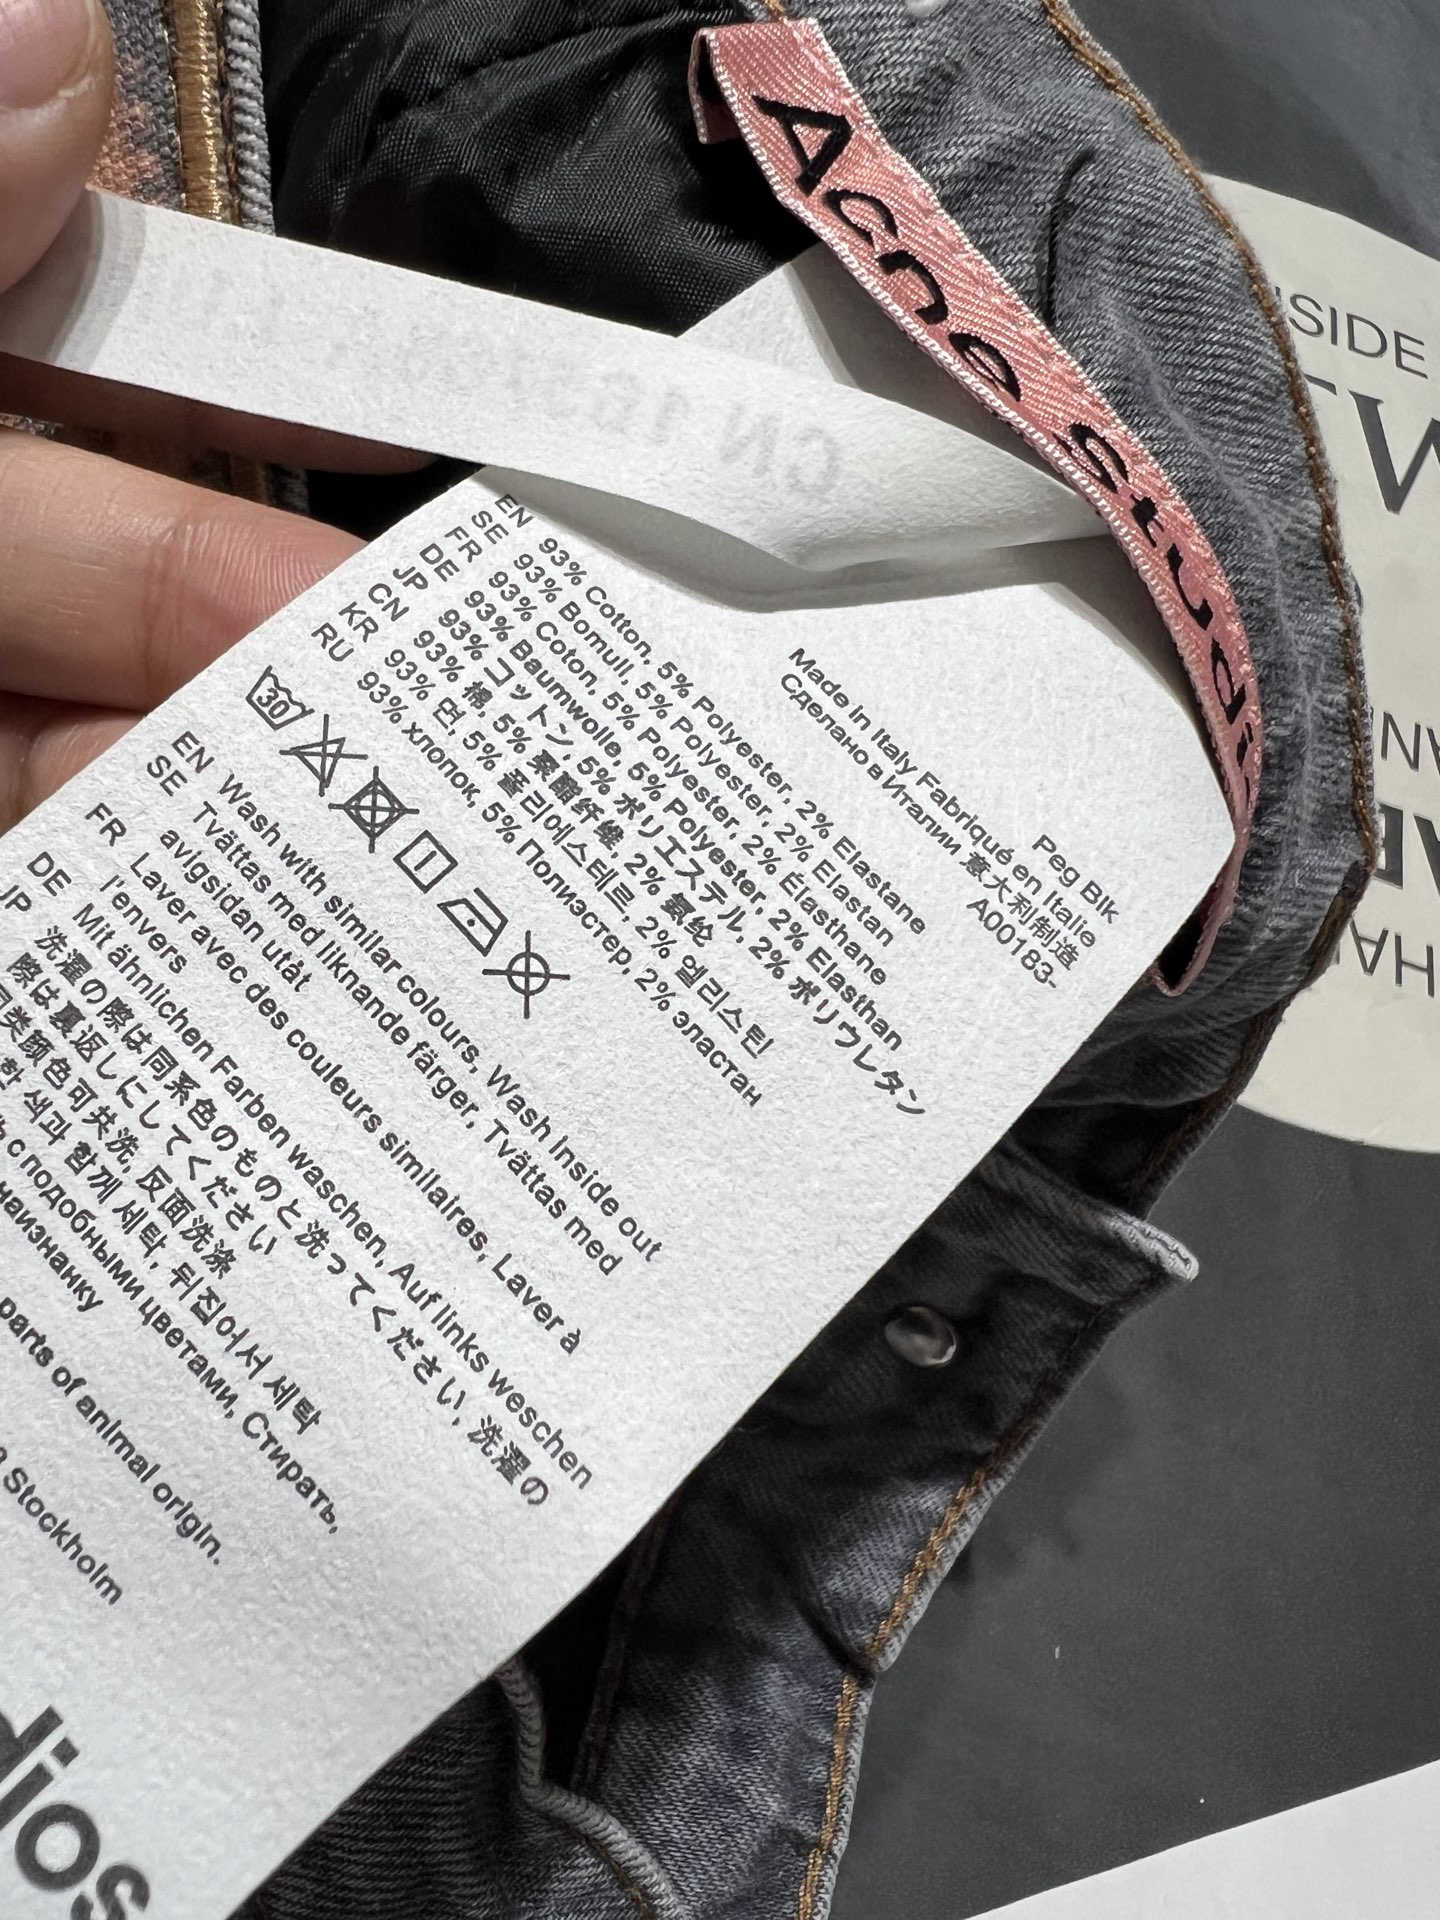 Acne Studios
CN 1
Peg Blk
A00183-
Made in Italy Fabriqué en Italie
Сделано в Италии 意大利制造
EN 93% Cotton, 5% Polyester, 2% Elastane
SE 93% Bomull, 5% Polyester, 2% Elastan
FR 93% Coton, 5% Polyester, 2% Élasthane
DE 93% Baumwolle, 5% Polyester, 2% Elasthan
JP 93% コットン, 5% ポリエステル, 2% ポリウレタン
CN 93% 棉, 5% 聚酯纤维, 2% 氨纶
KR 93% 면, 5% 폴리에스테르, 2% 엘리스틴
RU 93% хлопок, 5% Полиэстер, 2% эластан
30
EN Wash with similar colours, Wash Inside out
SE Tvättas med liknande färger, Tvättas med
avigsidan utåt
FR Laver avec des couleurs similaires, Laver à
l'envers
DE Mit ähnlichen Farben waschen, Auf links weschen
JP 洗濯の際は同系色のものと洗ってください, 洗濯の
際は裏返しにしてください
同类颜色可共洗, 反面洗涤
한 색과 함께 세탁, 뒤집어서 세탁
с подобными цветами, Стирать,
наизнанку
parts of animal origin.
Stockholm
dios
SIDE